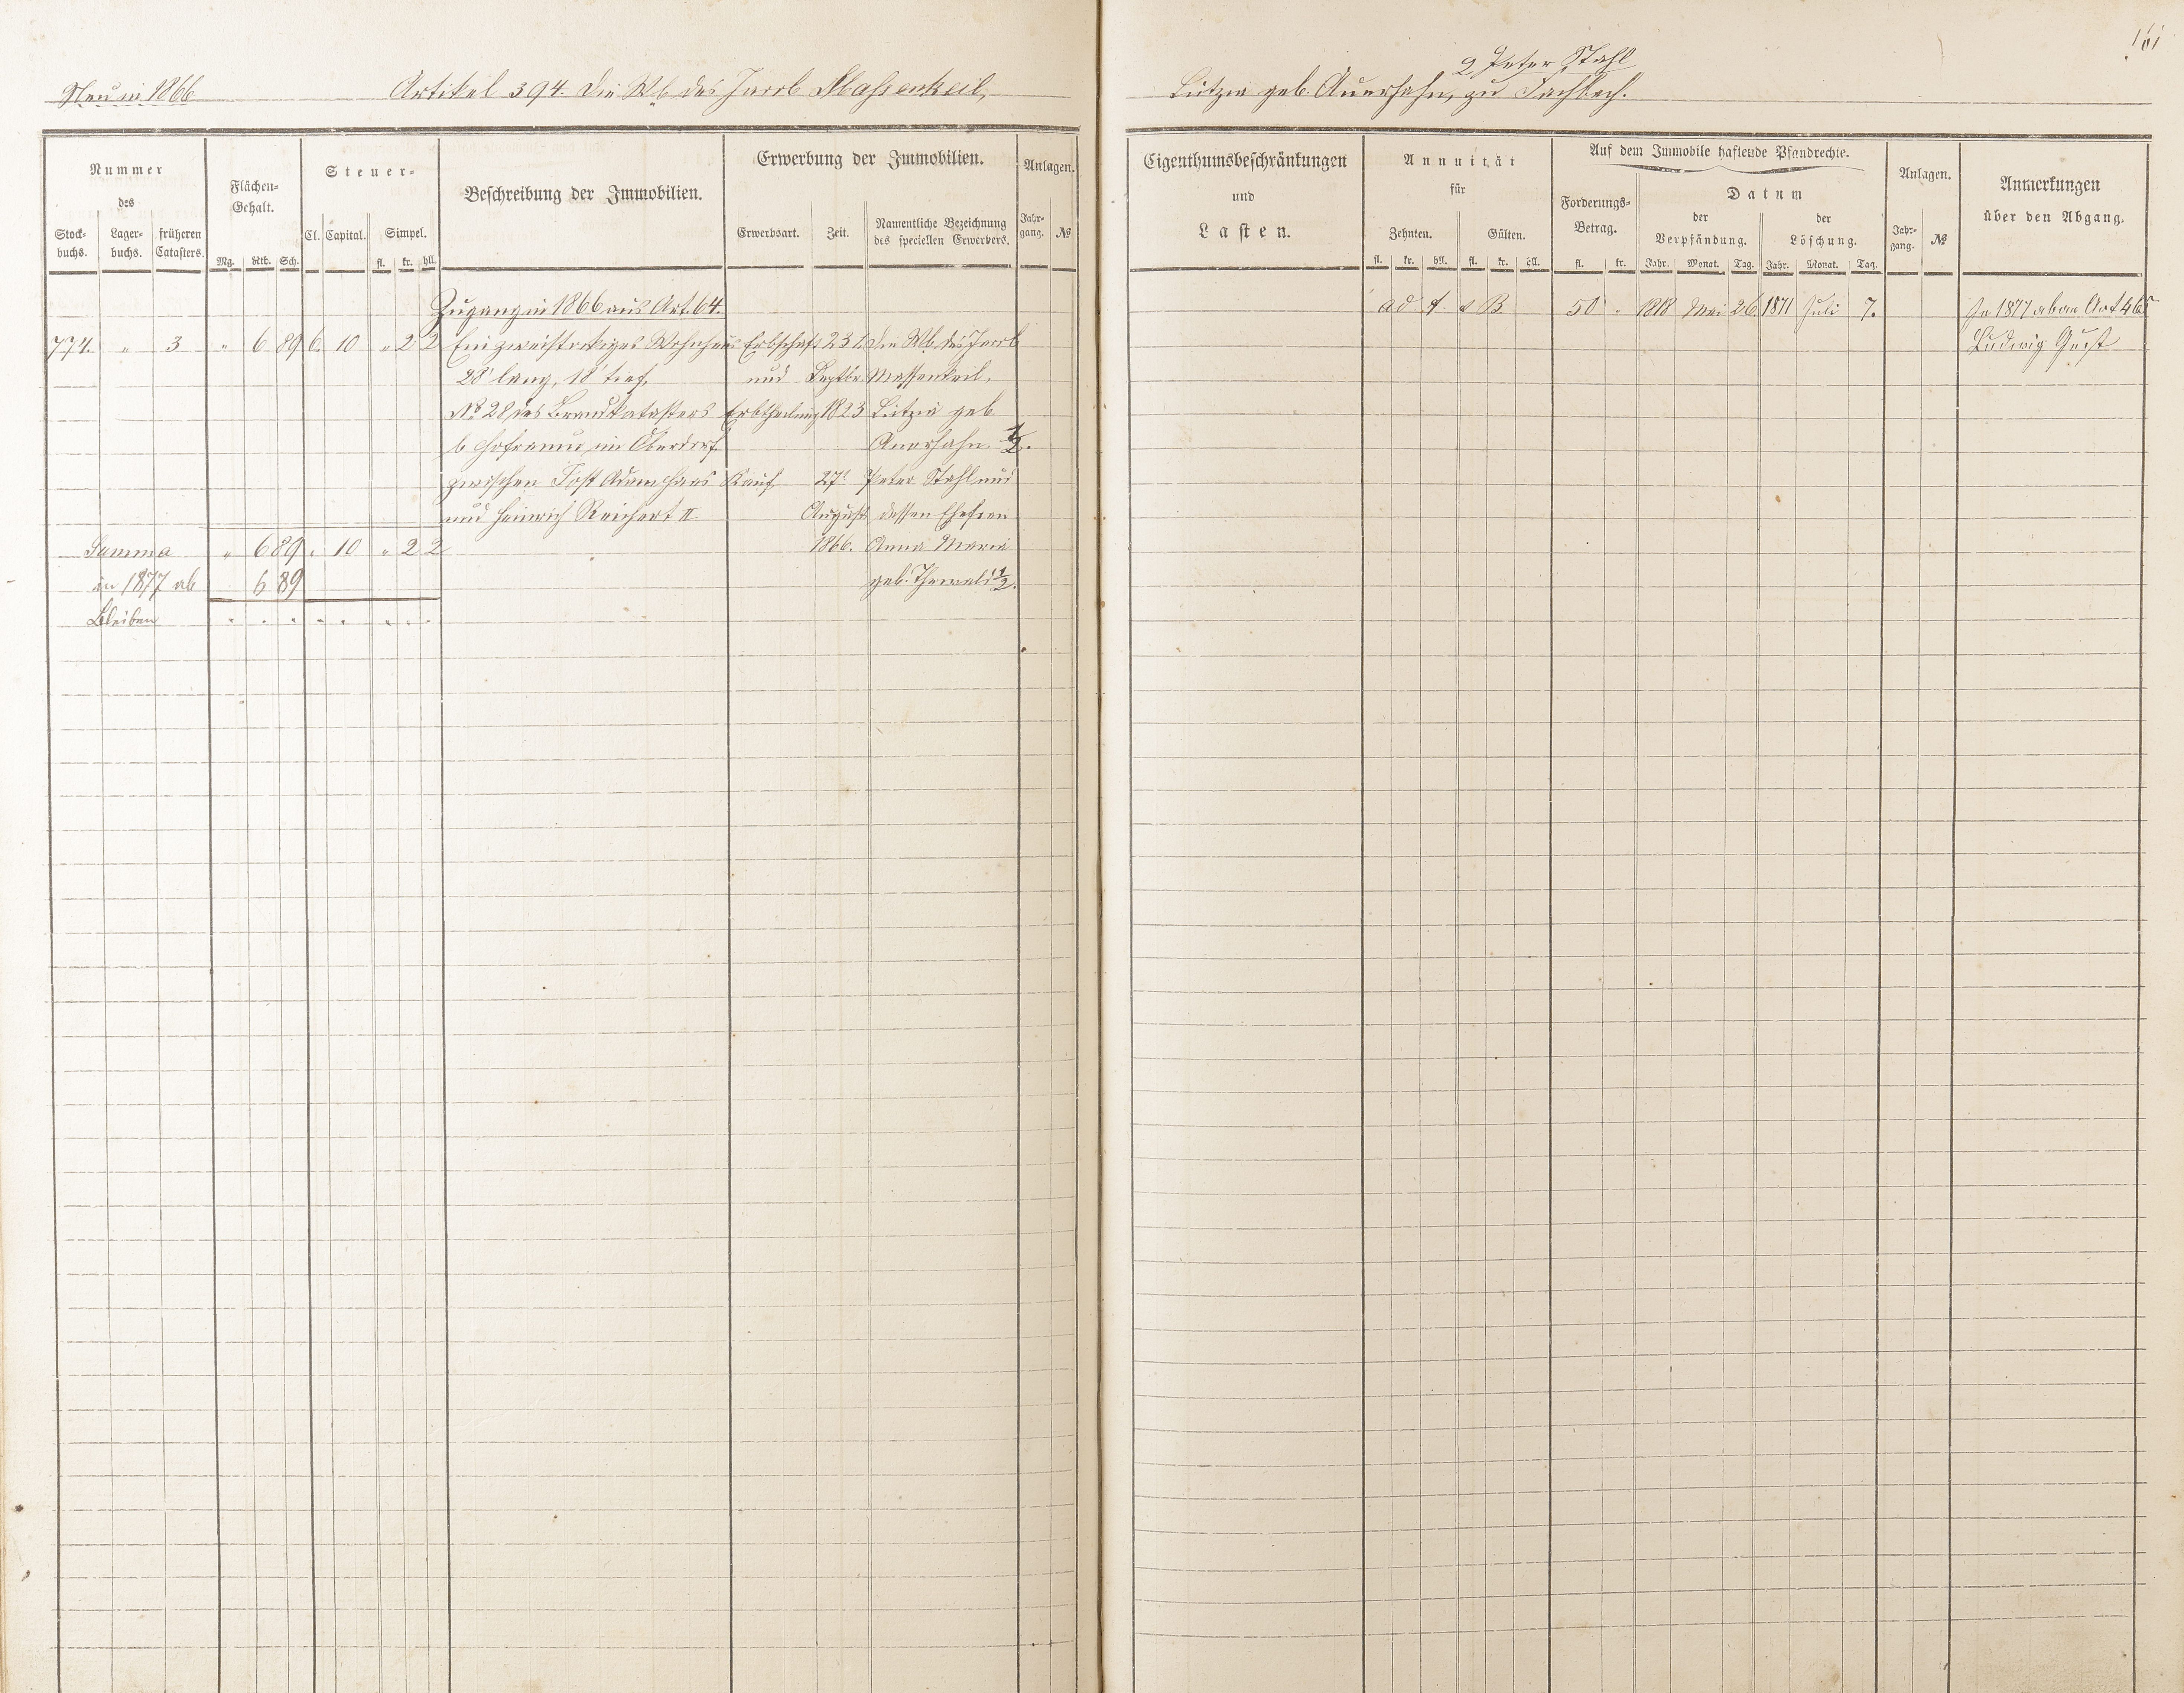 161
Neu in 1866 Artikel 394. Die Wb des Jacob Massenkeil, 2 Peter Stahl
Lützia geb. Auerhahn, zu Fachbach.
Nummer des
Stock-buchs. Lager-buchs. früheren Catasters.
Flächen-Gehalt.
Mg. Rth. Sch.
Steuer-
Cl. Capital. Simpel.
fl. kr. hll.
Beschreibung der Immobilien.
Erwerbung der Immobilien.
Erwerbsart. Zeit. Namentliche Bezeichnung des speciellen Erwerbers.
Anlagen.
Jahr-gang. №
Eigenthumsbeschränkungen
und
Lasten.
Annuität
für
Zehnten. Gülten.
fl. kr. hll. fl. kr. hll.
Auf dem Immobile haftende Pfandrechte.
Forderungs-Betrag.
fl. kr.
Datum
der Verpfändung. der Löschung.
Jahr. Monat. Tag. Jahr. Monat. Tag.
Anlagen.
Jahr-gang. №
Anmerkungen
über den Abgang.
Zugang in 1866 aus Art. 64.
774. " 3 " 6 89 6. 10 " 2 2 Ein zweistockiges Wohnhaus Erbschaft 23t Die Wb des Jacob
28' lang, 18' tief, und Septbr. Massenkeil,
No 28 des Brandkatasters Erbtheilung 1823 Lützia geb
b Hofraum im Oberdorf Auerhahn 1/2.
zwischen Jost Adam Haas Kauf 27t Peter Stahl und
und Heinrich Reichert II August dessen Ehefrau
Summa " 6 89 . 10 " 2 2 1866. Anna Maria
in 1877 ab 6 89 geb. Thewald 1/2.
Bleiben . . . . . . . .
ad A. & B 50 " 1818 Mai 26. 1871 Juli 7. In 1877 ab an Art 465
Ludwig